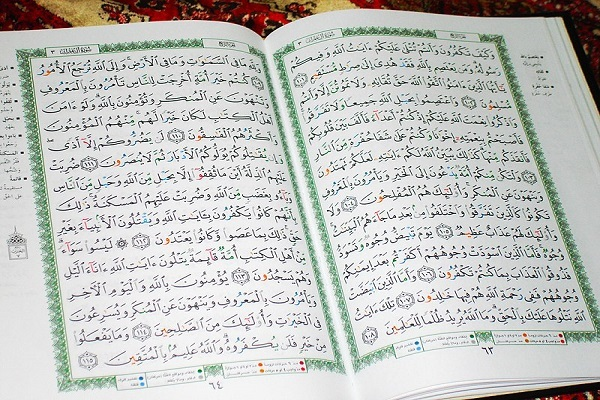 سُورَةُ آلِ عِمْرَان
٣
وَكَيْفَ تَكْفُرُونَ وَأَنتُمْ تُتْلَىٰ عَلَيْكُمْ ءَايَٰتُ ٱللَّهِ وَفِيكُمْ
رَسُولُهُۥ ۗ وَمَن يَعْتَصِم بِٱللَّهِ فَقَدْ هُدِىَ إِلَىٰ صِرَٰطٍ مُّسْتَقِيمٍ
١٠١ يَٰٓأَيُّهَا ٱلَّذِينَ ءَامَنُوا۟ ٱتَّقُوا۟ ٱللَّهَ حَقَّ تُقَاتِهِۦ وَلَا تَمُوتُنَّ إِلَّا وَأَنتُم
مُّسْلِمُونَ ١٠٢ وَٱعْتَصِمُوا۟ بِحَبْلِ ٱللَّهِ جَمِيعًا وَلَا تَفَرَّقُوا۟ ۚ
وَٱذْكُرُوا۟ نِعْمَتَ ٱللَّهِ عَلَيْكُمْ إِذْ كُنتُمْ أَعْدَآءً فَأَلَّفَ بَيْنَ قُلُوبِكُمْ
فَأَصْبَحْتُم بِنِعْمَتِهِۦٓ إِخْوَٰنًا وَكُنتُمْ عَلَىٰ شَفَا حُفْرَةٍ مِّنَ ٱلنَّارِ
فَأَنقَذَكُم مِّنْهَا ۗ كَذَٰلِكَ يُبَيِّنُ ٱللَّهُ لَكُمْ ءَايَٰتِهِۦ لَعَلَّكُمْ تَهْتَدُونَ
١٠٣ وَلْتَكُن مِّنكُمْ أُمَّةٌ يَدْعُونَ إِلَى ٱلْخَيْرِ وَيَأْمُرُونَ بِٱلْمَعْرُوفِ
وَيَنْهَوْنَ عَنِ ٱلْمُنكَرِ ۚ وَأُو۟لَٰٓئِكَ هُمُ ٱلْمُفْلِحُونَ ١٠٤ وَلَا
تَكُونُوا۟ كَٱلَّذِينَ تَفَرَّقُوا۟ وَٱخْتَلَفُوا۟ مِنۢ بَعْدِ مَا جَآءَهُمُ ٱلْبَيِّنَٰتُ ۚ
وَأُو۟لَٰٓئِكَ لَهُمْ عَذَابٌ عَظِيمٌ ١٠٥ يَوْمَ تَبْيَضُّ وُجُوهٌ وَتَسْوَدُّ
وُجُوهٌ ۚ فَأَمَّا ٱلَّذِينَ ٱسْوَدَّتْ وُجُوهُهُمْ أَكَفَرْتُم بَعْدَ إِيمَٰنِكُمْ
فَذُوقُوا۟ ٱلْعَذَابَ بِمَا كُنتُمْ تَكْفُرُونَ ١٠٦ وَأَمَّا ٱلَّذِينَ ٱبْيَضَّتْ
وُجُوهُهُمْ فَفِى رَحْمَةِ ٱللَّهِ هُمْ فِيهَا خَٰلِدُونَ ١٠٧ تِلْكَ ءَايَٰتُ
ٱللَّهِ نَتْلُوهَا عَلَيْكَ بِٱلْحَقِّ ۗ وَمَا ٱللَّهُ يُرِيدُ ظُلْمًا لِّلْعَٰلَمِينَ ١٠٨
٦٣
سُورَةُ آلِ عِمْرَان
٣
وَلِلَّهِ مَا فِى ٱلسَّمَٰوَٰتِ وَمَا فِى ٱلْأَرْضِ ۚ وَإِلَى ٱللَّهِ تُرْجَعُ ٱلْأُمُورُ
١٠٩ كُنتُمْ خَيْرَ أُمَّةٍ أُخْرِجَتْ لِلنَّاسِ تَأْمُرُونَ بِٱلْمَعْرُوفِ
وَتَنْهَوْنَ عَنِ ٱلْمُنكَرِ وَتُؤْمِنُونَ بِٱللَّهِ ۗ وَلَوْ ءَامَنَ
أَهْلُ ٱلْكِتَٰبِ لَكَانَ خَيْرًا لَّهُم ۚ مِّنْهُمُ ٱلْمُؤْمِنُونَ
وَأَكْثَرُهُمُ ٱلْفَٰسِقُونَ ١١٠ لَن يَضُرُّوكُمْ إِلَّآ أَذًى ۖ
وَإِن يُقَٰتِلُوكُمْ يُوَلُّوكُمُ ٱلْأَدْبَارَ ثُمَّ لَا يُنصَرُونَ ١١١ ضُرِبَتْ
عَلَيْهِمُ ٱلذِّلَّةُ أَيْنَ مَا ثُقِفُوٓا۟ إِلَّا بِحَبْلٍ مِّنَ ٱللَّهِ وَحَبْلٍ مِّنَ ٱلنَّاسِ
وَبَآءُو بِغَضَبٍ مِّنَ ٱللَّهِ وَضُرِبَتْ عَلَيْهِمُ ٱلْمَسْكَنَةُ ۚ ذَٰلِكَ
بِأَنَّهُمْ كَانُوا۟ يَكْفُرُونَ بِـَٔايَٰتِ ٱللَّهِ وَيَقْتُلُونَ ٱلْأَنۢبِيَآءَ بِغَيْرِ
حَقٍّ ۚ ذَٰلِكَ بِمَا عَصَوا۟ وَّكَانُوا۟ يَعْتَدُونَ ١١٢ لَيْسُوا۟ سَوَآءً ۗ
مِّنْ أَهْلِ ٱلْكِتَٰبِ أُمَّةٌ قَآئِمَةٌ يَتْلُونَ ءَايَٰتِ ٱللَّهِ ءَانَآءَ ٱلَّيْلِ
وَهُمْ يَسْجُدُونَ ١١٣ يُؤْمِنُونَ بِٱللَّهِ وَٱلْيَوْمِ ٱلْءَاخِرِ
وَيَأْمُرُونَ بِٱلْمَعْرُوفِ وَيَنْهَوْنَ عَنِ ٱلْمُنكَرِ وَيُسَٰرِعُونَ
فِى ٱلْخَيْرَٰتِ وَأُو۟لَٰٓئِكَ مِنَ ٱلصَّٰلِحِينَ ١١٤ وَمَا يَفْعَلُوا۟
مِنْ خَيْرٍ فَلَن يُكْفَرُوهُ ۗ وَٱللَّهُ عَلِيمٌۢ بِٱلْمُتَّقِينَ ١١٥
٦٤